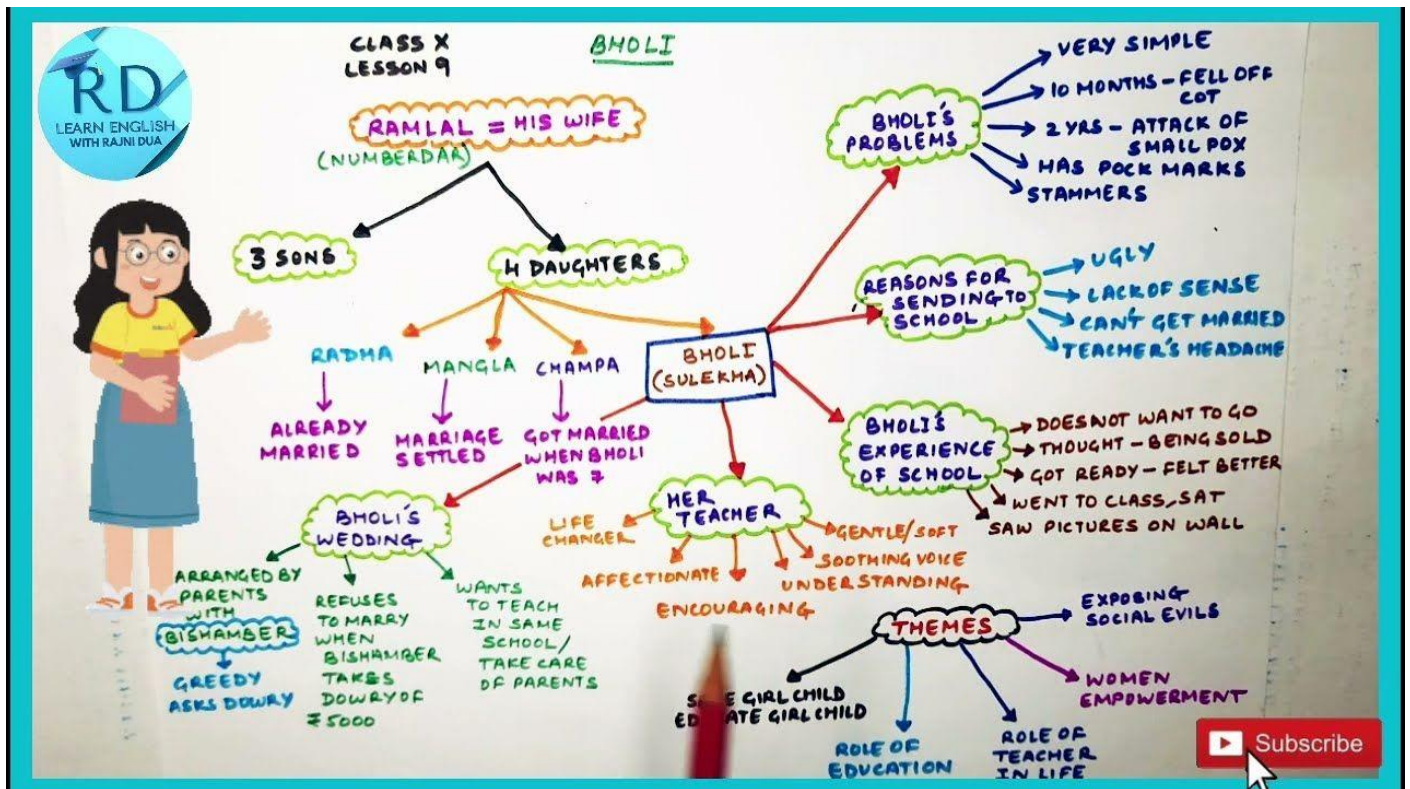 RD
LEARN ENGLISH
WITH RAJNI DUA
CLASS X
LESSON 9
BHOLI
RAMLAL = HIS WIFE
(NUMBERDAR)
3 SONS
4 DAUGHTERS
RADHA
MANGLA
CHAMPA
BHOLI
(SULEKHA)
ALREADY
MARRIED
MARRIAGE
SETTLED
GOT MARRIED
WHEN BHOLI
WAS 7
BHOLI'S
PROBLEMS
VERY SIMPLE
10 MONTHS - FELL OFF
COT
2 YRS - ATTACK OF
SMALL POX
HAS POCK MARKS
STAMMERS
REASONS FOR
SENDING TO
SCHOOL
UGLY
LACK OF SENSE
CAN'T GET MARRIED
TEACHER'S HEADACHE
BHOLI'S
EXPERIENCE
OF SCHOOL
DOES NOT WANT TO GO
THOUGHT - BEING SOLD
GOT READY - FELT BETTER
WENT TO CLASS, SAT
SAW PICTURES ON WALL
HER
TEACHER
LIFE
CHANGER
AFFECTIONATE
ENCOURAGING
UNDERSTANDING
SOOTHING VOICE
GENTLE/SOFT
BHOLI'S
WEDDING
ARRANGED BY
PARENTS
WITH
BISHAMBER
GREEDY
ASKS DOWRY
REFUSES
TO MARRY
WHEN
BISHAMBER
TAKES
DOWRY OF
₹5000
WANTS
TO TEACH
IN SAME
SCHOOL/
TAKE CARE
OF PARENTS
THEMES
EXPOSING
SOCIAL EVILS
WOMEN
EMPOWERMENT
ROLE OF
TEACHER
IN LIFE
ROLE OF
EDUCATION
GIRL CHILD
GIRL CHILD
Subscribe